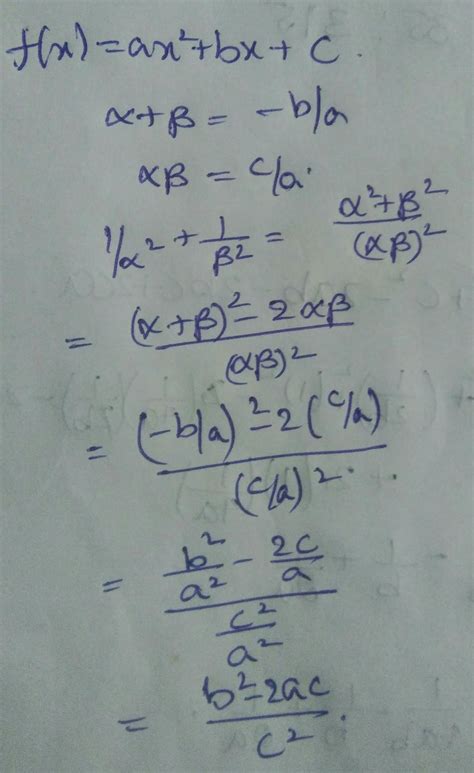 f(x) = ax²+bx+ c.
α+β = -b/a
αβ = c/a.
1/α² + 1/β² = α²+β²/(αβ)²
= (α+β)²-2αβ/(αβ)²
= (-b/a)²-2(c/a)/(c/a)².
= b²/a² - 2c/a / c²/a²
= b²-2ac/c².